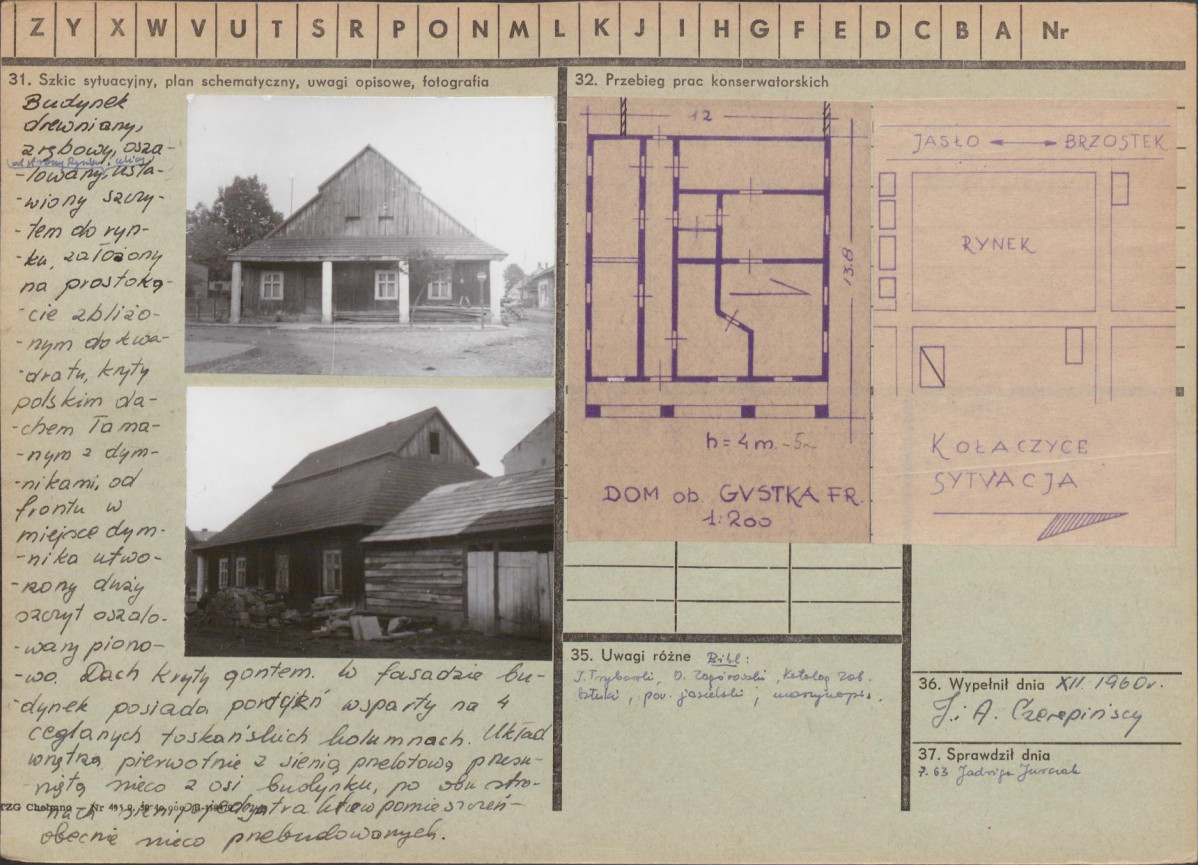 Z Y X W V U T S R P O N M L K J I H G F E D C B A Nr
31. Szkic sytuacyjny, plan schematyczny, uwagi opisowe, fotografia
Budynek
drewniany,
zrębowy, osza-
od strony Rynku, ulicy
-lowany, usta-
-wiony szczy-
-tem do ryn-
-ku, założony
na prostoką-
-cie zbliżo-
-nym do kwa-
-dratu, kryty
polskim da-
-chem łama-
-nym z dym-
-nikami, od
frontu w
miejsce dym-
-nika utwo-
-rzony duży
szczyt oszalo-
-wany piono-
-wo. Dach kryty gontem. W fasadzie bu-
-dynek posiada portyk wsparty na 4
ceglanych toskańskich kolumnach. Układ
wnętrza pierwotnie z sienią przelotową przesu-
-niętą nieco z osi budynku, po obu stro-
-nach sieni
obecnie nieco przebudowanych.
32. Przebieg prac konserwatorskich
12
13.8
h = 4 m. ~5~
DOM ob. GUSTKA FR.
1:200
JASŁO BRZOSTEK
RYNEK
KOŁACZYCE
SYTUACJA
35. Uwagi różne Bibl:
J. Trybowski, O. Zagórowski, Katalog zab.
sztuki, pow. jasielski, maszynopis.
36. Wypełnił dnia XII. 1960 r.
J. i A. Czerepińscy
37. Sprawdził dnia
7. 63 Jadwiga